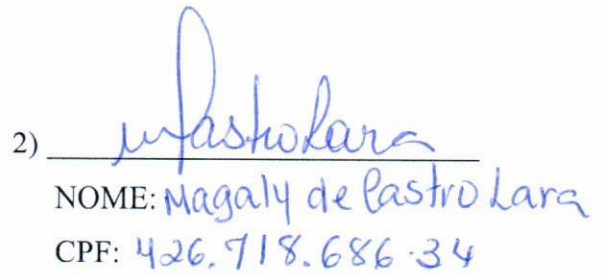 2) mCastroLara
NOME: Magaly de Castro Lara
CPF: 426.718.686-34